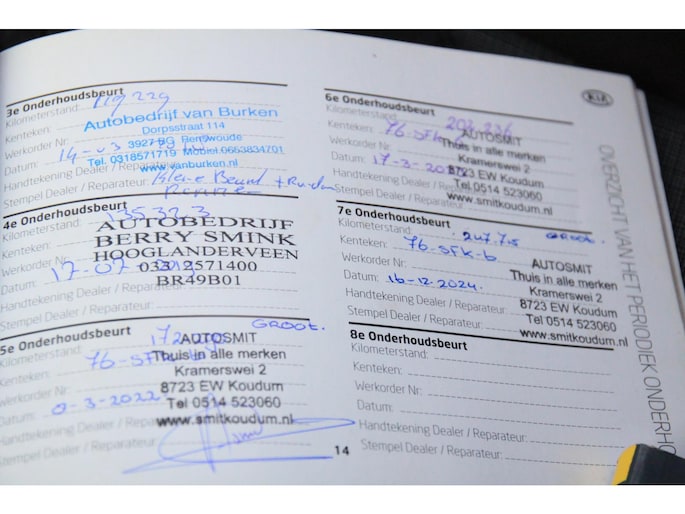 3e Onderhoudsbeurt
Kilometerstand: 119 229
Kenteken:
Autobedrijf van Burken
Dorpsstraat 114
Werkorder Nr:
3927 BG Renswoude
Datum: 14-03
Tel. 0318571719 Mobiel 0653834701
www.vanburken.nl
Handtekening Dealer / Reparateur: Kleine Beurt +
Stempel Dealer / Reparateur:
4e Onderhoudsbeurt
Kilometerstand: 135 323
AUTOBEDRIJF
Kenteken:
BERRY SMINK
Werkorder Nr:
HOOGLANDERVEEN
Datum: 17-07
033 2571400
Handtekening Dealer / Reparateur:
BR49B01
Stempel Dealer / Reparateur:
5e Onderhoudsbeurt
GROOT.
Kilometerstand: 172
AUTOSMIT
Kenteken: 76-SFK
Thuis in alle merken
Kramerswei 2
Werkorder Nr:
8723 EW Koudum
Datum: -3-2022
Tel 0514 523060
Handtekening Dealer / Reparateur:
www.smitkoudum.nl
Stempel Dealer / Reparateur:
14
KIA
OVERZICHT VAN HET PERIODIEK ONDERHO
6e Onderhoudsbeurt
Kilometerstand: 203.236
Kenteken: 76-SFK
AUTOSMIT
Werkorder Nr:
Thuis in alle merken
Datum: 17-3-
Kramerswei 2
Handtekening Dealer
8723 EW Koudum
Stempel Dealer / Reparateur:
Tel 0514 523060
www.smitkoudum.nl
7e Onderhoudsbeurt
Kilometerstand: 247.715 GROOT.
Kenteken: 76-SFK-6
AUTOSMIT
Werkorder Nr:
Thuis in alle merken
Datum: 16-12-2024.
Kramerswei 2
Handtekening Dealer / Reparateur:
8723 EW Koudum
Tel 0514 523060
Stempel Dealer / Reparateur:
www.smitkoudum.nl
8e Onderhoudsbeurt
Kilometerstand:
Kenteken:
Werkorder Nr:
Datum:
Handtekening Dealer / Reparateur:
Stempel Dealer / Reparateur: